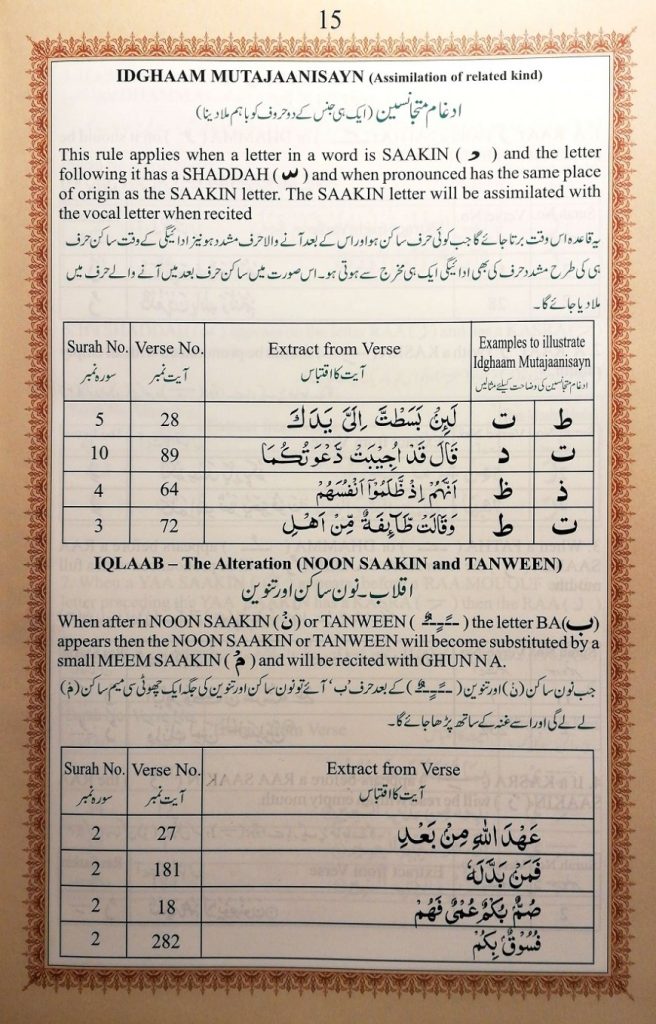 15
IDGHAAM MUTAJAANISAYN (Assimilation of related kind)
ادغام متجانسین (ایک ہی جنس کے دو حروف کو باہم ملا دینا)
This rule applies when a letter in a word is SAAKIN ( ) and the letter
following it has a SHADDAH ( ) and when pronounced has the same place
of origin as the SAAKIN letter. The SAAKIN letter will be assimilated with
the vocal letter when recited
یہ قاعدہ اس وقت برتا جائے گا جب کوئی حرف ساکن ہو اور اس کے بعد آنے والا حرف مشدد ہو نیز ادائیگی کے وقت ساکن حرف
ہی کی طرح مشدد حرف کی بھی ادائیگی ایک ہی مخرج سے ہوتی ہو۔ اس صورت میں ساکن حرف بعد میں آنے والے حرف میں
ملا دیا جائے گا۔
Surah No. Verse No. Extract from Verse Examples to illustrate
Idghaam Mutajaanisayn
سورہ نمبر آیت نمبر آیت کا اقتباس ادغام متجانسین کی وضاحت کیلئے مثالیں
5 28 لَئِنْۢ بَسَطْتَّ اِلَیَّ یَدَكَ ت ط
10 89 قَالَ قَدْ اُجِیْبَتْ دَّعْوَتُكُمَا د ت
4 64 اَنَّهُمْ اِذْ ظَّلَمُوْۤا اَنْفُسَهُمْ ظ ذ
3 72 وَقَالَتْ طَّآئِفَةٌ مِّنْ اَهْلِ ط ت
IQLAAB – The Alteration (NOON SAAKIN and TANWEEN)
اقلاب۔ نون ساکن اور تنوین
When after n NOON SAAKIN (نْ) or TANWEEN ( ) the letter BA(ب)
appears then the NOON SAAKIN or TANWEEN will become substituted by a
small MEEM SAAKIN (مْ) and will be recited with GHUN N A.
جب نون ساکن (نْ) اور تنوین ( ) کے بعد حرف 'ب' آئے تو نون ساکن اور تنوین کی جگہ ایک چھوٹی سی میم ساکن (مْ)
لے لے گی اور اسے غنہ کے ساتھ پڑھا جائے گا۔
Surah No. Verse No. Extract from Verse
سورہ نمبر آیت نمبر آیت کا اقتباس
2 27 عَهْدَ اللهِ مِنْۢ بَعْدِ
2 181 فَمَنْۢ بَدَّلَهٗ
2 18 صُمٌّۢ بُكْمٌ عُمْیٌ فَهُمْ
2 282 فُسُوْقٌۢ بِكُمْ